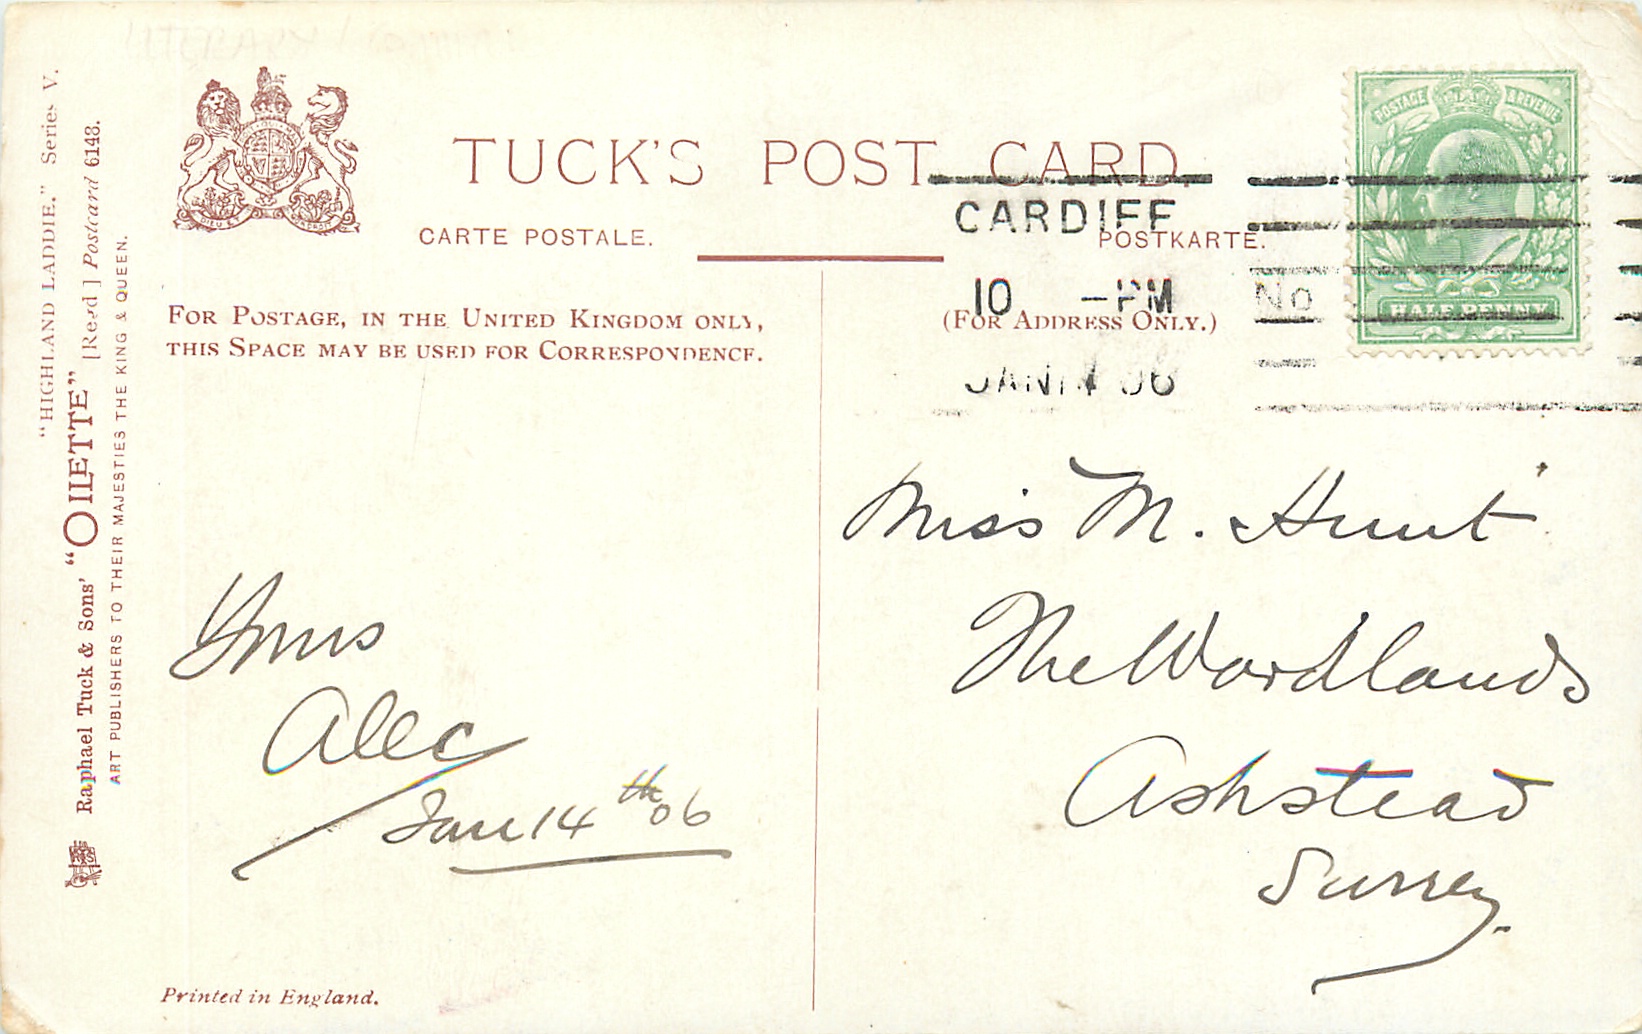 "HIGHLAND LADDIE." Series V.
Raphael Tuck & Sons' "OILETTE" [Regd.] Postcard 6148.
ART PUBLISHERS TO THEIR MAJESTIES THE KING & QUEEN.
TUCK'S POST CARD.
CARTE POSTALE.
POSTKARTE.
FOR POSTAGE, IN THE UNITED KINGDOM ONLY,
THIS SPACE MAY BE USED FOR CORRESPONDENCE.
(FOR ADDRESS ONLY.)
POSTAGE & REVENUE
HALFPENNY
CARDIFF
10 - PM
No
JAN 14 06
Yours
Alec
Jan 14th 06
Miss M. Hunt
The Wordlands
Ashstead
Surrey.
Printed in England.